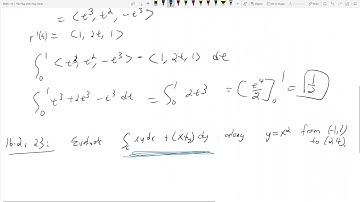 = ⟨t³, t², -t³⟩
r'(t) = ⟨1, 2t, 1⟩
∫₀¹ ⟨t³, t², -t³⟩ · ⟨1, 2t, 1⟩ dt
∫₀¹ t³ + 2t³ - t³ dt = ∫₀¹ 2t³ = [t⁴/2]₀¹ = 1/2
16.2, 23: Evaluate ∫ xy dx + (x+y) dy along y=x² from (-1,1) to (2,4)